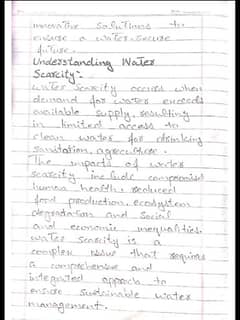 innovative solutions to
ensure a water-secure
future.
Understanding Water
Scarcity:-
Water scarcity occurs when
demand for water exceeds
available supply, resulting
in limited access to
clean water for drinking
sanitation, agreculture.
The impacts of water
scarcity include compromised
human health, reduced
food production, ecosystem
degradation and social
and economic inequalities.
water scarcity is a
complex issue that requires
a comprehensive and
integrated approach to
ensure sustainable water
management.